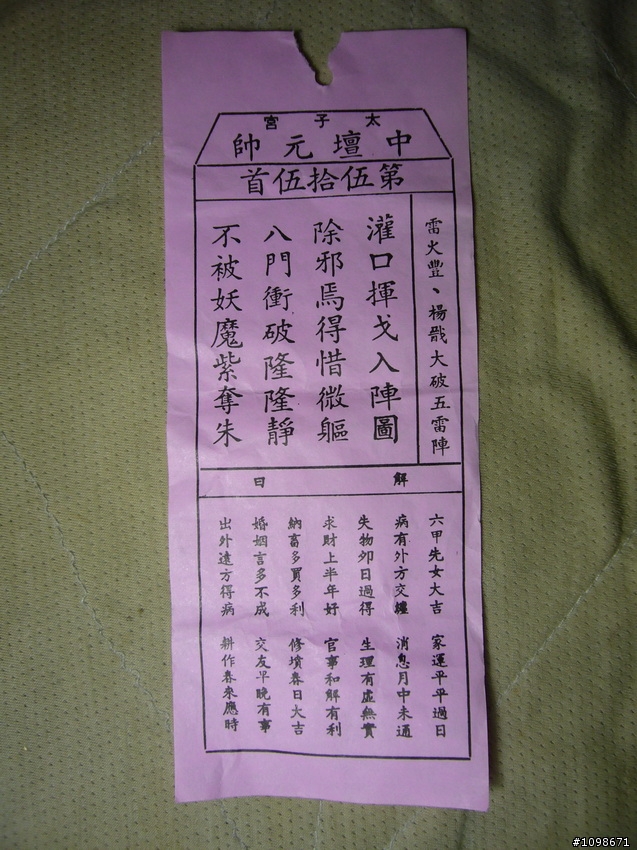 太子宮
中壇元帥
第伍拾伍首
雷火豐、楊戩大破五雷陣
灌口揮戈入陣圖
除邪焉得惜微軀
八門衝破隆隆靜
不被妖魔紫奪朱
解曰
六甲先女大吉 家運平平過日
病有外方交纏 消息月中未通
失物卯日過得 生理有虛無實
求財上半年好 官事和解有利
納畜多買多利 修墳春日大吉
婚姻言多不成 交友早晚有事
出外遠方得病 耕作春來應時
#1098671